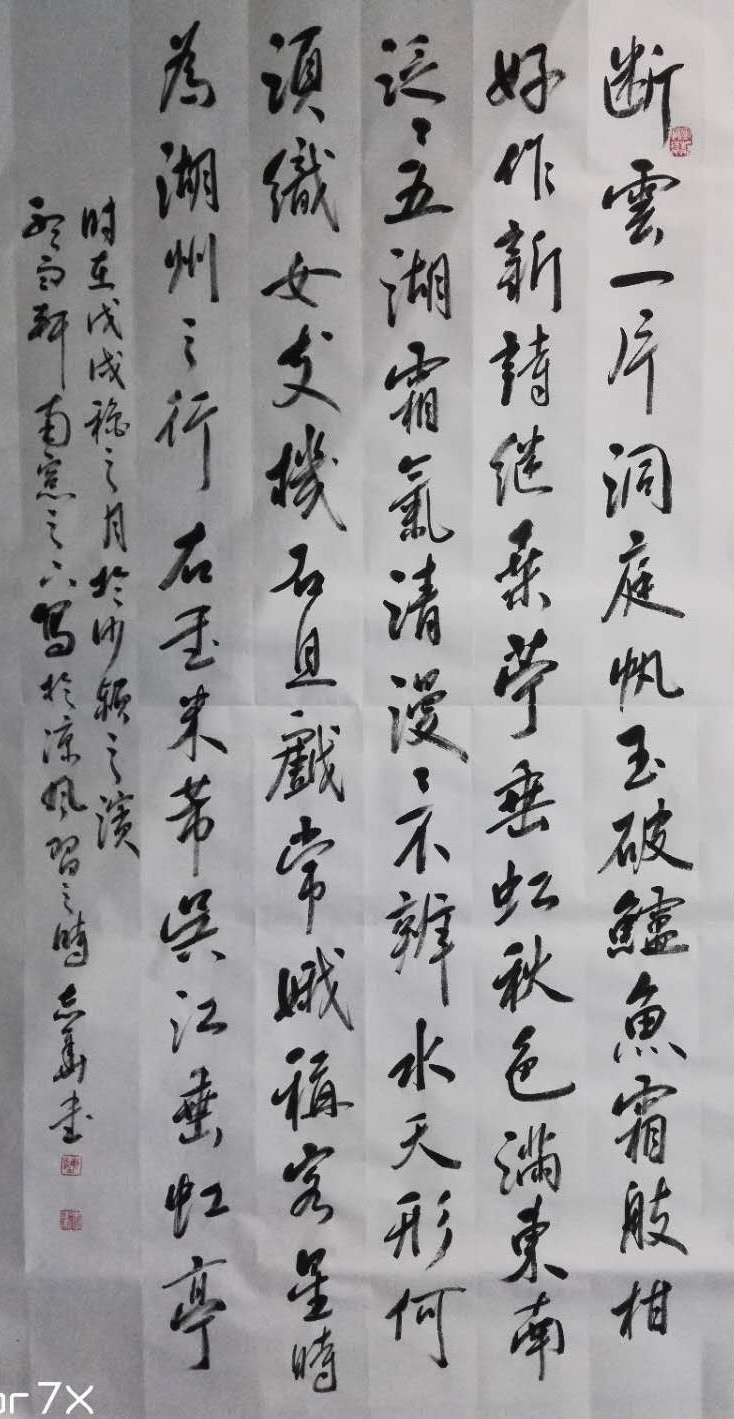 断雲一片洞庭帆玉破鱸魚霜肢柑
好作新詩继桑苧垂虹秋色滿東南
泛〻五湖霜氣清漫〻不辨水天形何
須織女支機石且戲常娥稱客星時
為湖州之行右录米芾吳江垂虹亭
時在戊戌穐之月於沙颍之濱
雨軒南窓之下写於凉風習之時志勇书
or 7X